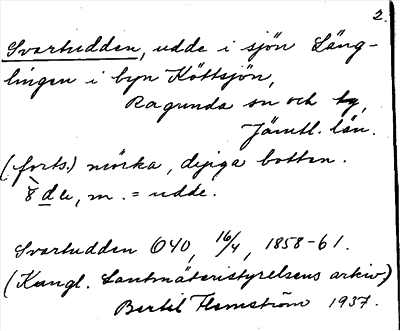 2.
Svartudden, udde i sjön Läng-
lingen i byn Köttsjön,
Ragunda sn och tg,
Jämtl. län.
(forts.) mörka, dyiga botten.
8 de, m. = udde.
Svartudden O40, 16/4, 1858-61.
(Kungl. Lantmäteristyrelsens arkiv)
Bertil Flemström 1937.